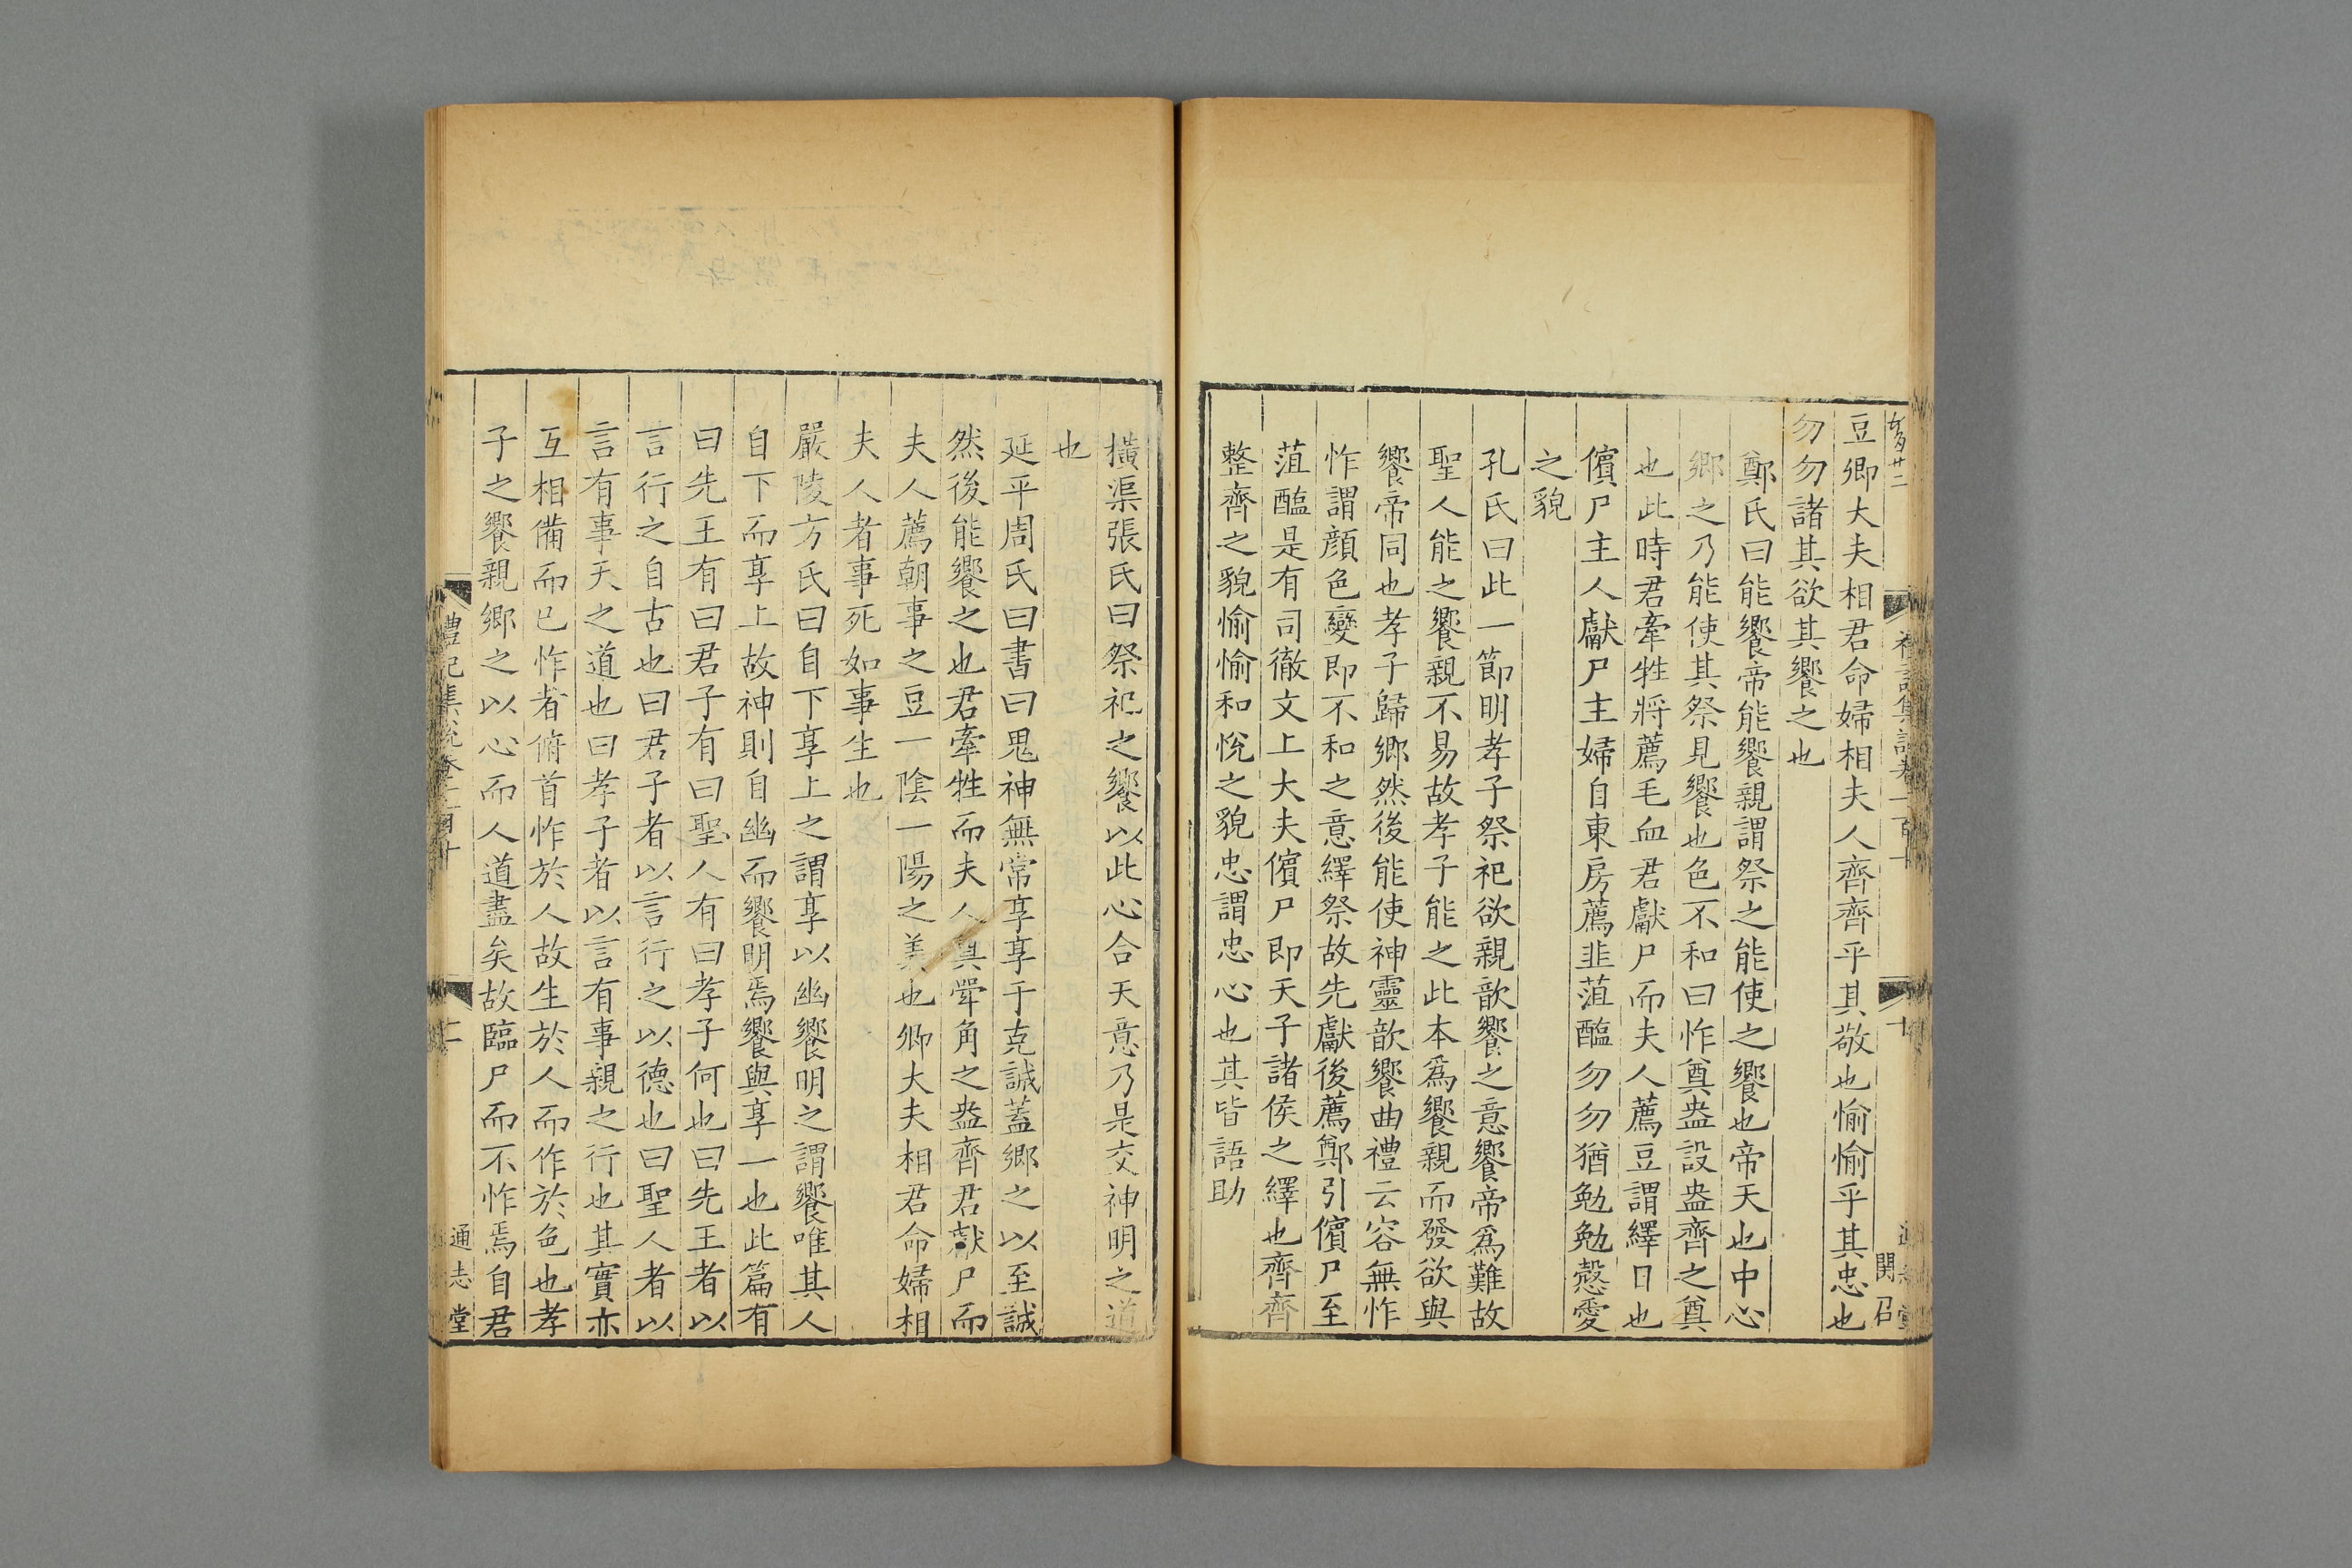 豆卿大夫相君命婦相夫人齊齊乎其敬也愉愉乎其忠也
勿勿諸其欲其饗之也
鄭氏曰能饗帝能饗親謂祭之能使之饗也帝天也中心
鄉之乃能使其祭見饗也色不和曰怍奠盎設盎齊之奠
也此時君牽牲將薦毛血君獻尸而夫人薦豆謂繹日也
儐尸主人獻尸主婦自東房薦韭菹醢勿勿猶勉勉愨愛
之貌
孔氏曰此一節明孝子祭祀欲親歆饗之意饗帝爲難故
聖人能之饗親不易故孝子能之此本爲饗親而發欲與
饗帝同也孝子歸鄉然後能使神靈歆饗曲禮云容無怍
怍謂顔色變即不和之意繹祭故先獻後薦鄭引儐尸至
菹醢是有司徹文上大夫儐尸即天子諸侯之繹也齊齊
整齊之貌愉愉和悅之貌忠謂忠心也其皆語助
橫渠張氏曰祭祀之饗以此心合天意乃是交神明之道
也
延平周氏曰書曰鬼神無常享享于克誠蓋鄉之以至誠
然後能饗之也君牽牲而夫人奠斝角之盎齊君獻尸而
夫人薦朝事之豆一陰一陽之義也卿大夫相君命婦相
夫人者事死如事生也
嚴陵方氏曰自下享上之謂享以幽饗明之謂饗唯其人
自下而享上故神則自幽而饗明焉饗與享一也此篇有
曰先王有曰君子有曰聖人有曰孝子何也曰先王者以
言行之自古也曰君子者以言行之以德也曰聖人者以
言有事天之道也曰孝子者以言有事親之行也其實亦
互相備而已怍者俯首怍於人故生於人而作於色也孝
子之饗親鄉之以心而人道盡矣故臨尸而不怍焉自君
禮記集說卷一百十
十一
通志堂